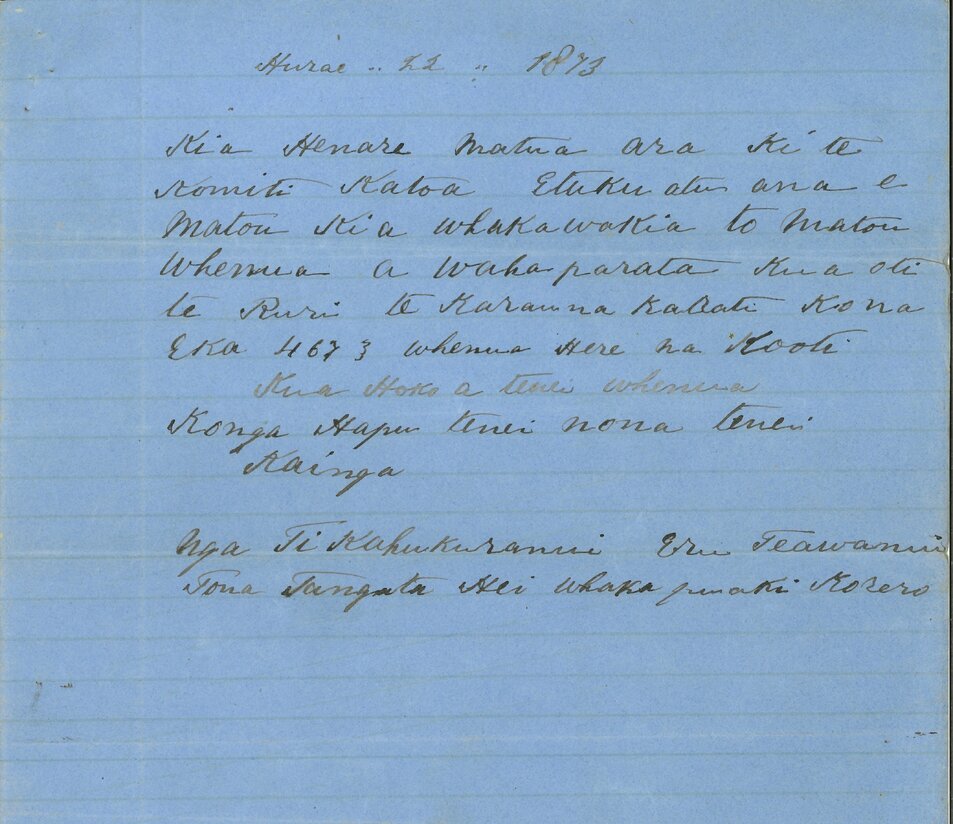 Hurae .. 22 .. 1873
Kia Henare Matua ara Ki te
Komiti Katoa Etuku atu ana e
Matou Kia whakawakia to Matou
Whenua a Waha parata Kua oti
te Ruri te Karauna karati Kona
Eka 4673 whenua Here na Kooti
Kua Hoko a tenei whenua
Konga Hapu tenei nona tenei
Kainga
Nga Ti Kahukuranui Eru Teawanui
Tona Tangata Hei Whaka puaki Korero